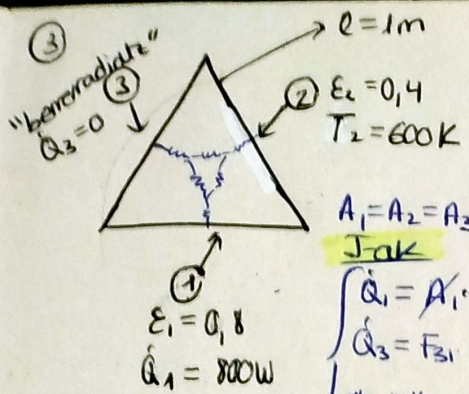 ③
ℓ = 1m
"berrerradiatz"
Q̇₃ = 0
③
② ε₂ = 0,4
T₂ = 600K
A₁ = A₂ = A₃
J-ak
Q̇₁ = A₁·
Q̇₃ = F₃₁
①
ε₁ = 0,8
Q̇₁ = 800W